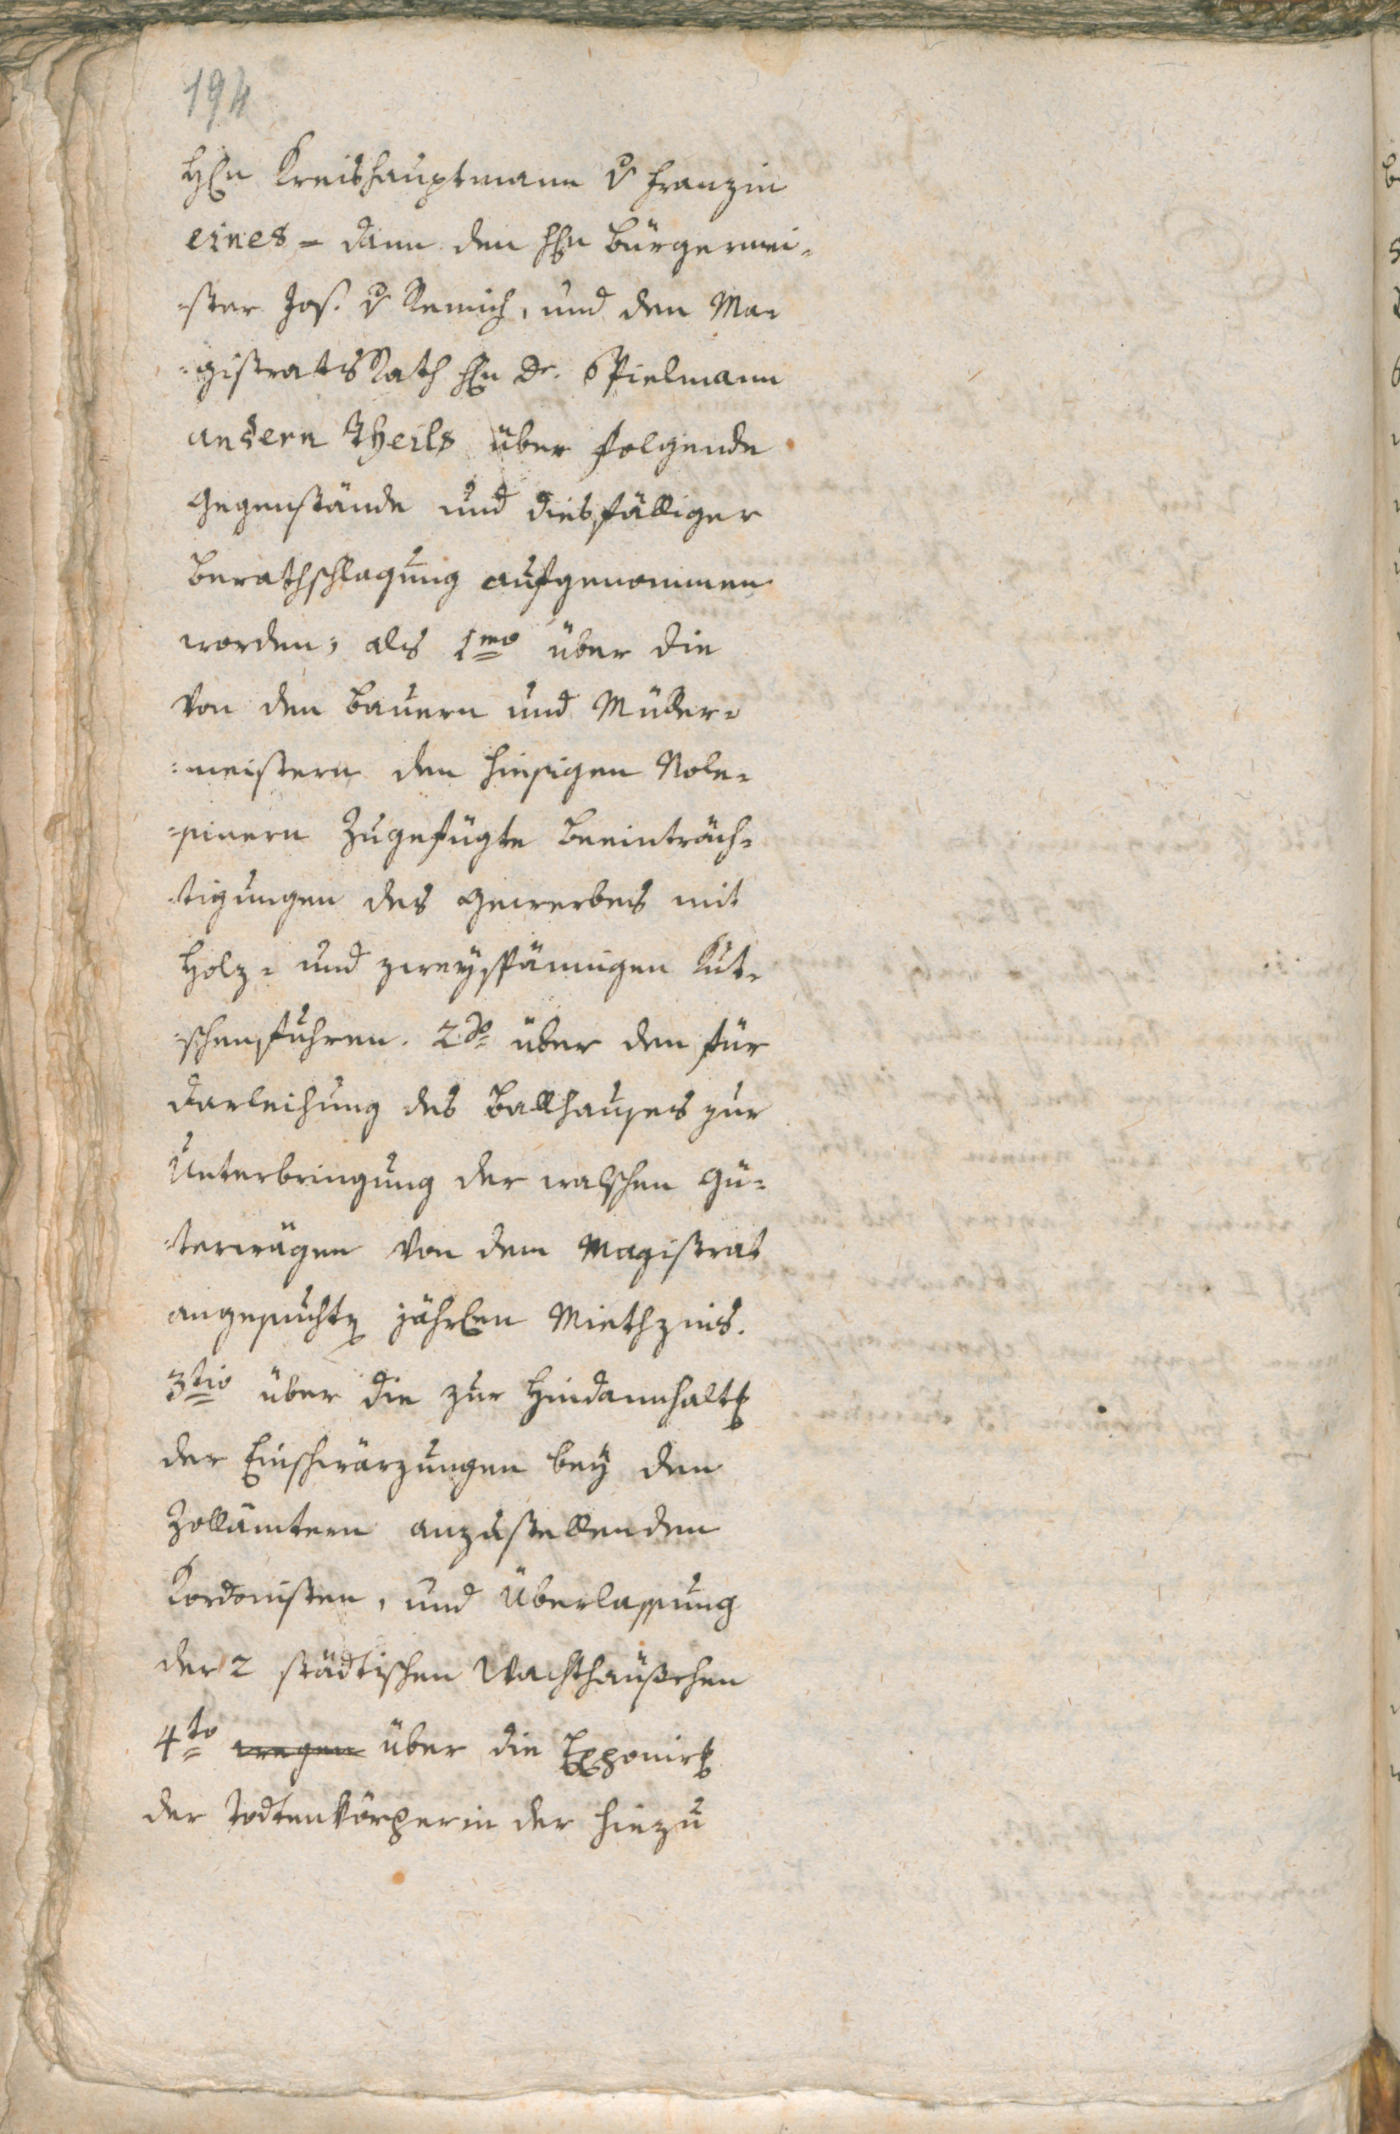 194
H̃n Kreishauptmann v Franzin
eines = dann den H̃n Bürgermei-
-ster Jos. v Remich, und den Ma-
-gistrats Rath H̃n Dr. Spielmann
andern Theils über folgende
Gegenstände und diesfälliger
Berathschlagung aufgenommen
worden; als 1mo über die
von den Bauern und Müller-
-meistern den hiesigen Role-
-pinern zugefügte Beeinträch-
-tigungen des Gewerbes mit
Holz- und zweyspännigen Kut-
-schenfuhren. 2do über den für
Darleihung des Ballhauses zur
Unterbringung der walschen Gü-
-terwägen von dem Magistrat
angesuchten jährlen Miethzins.
3tio über die zur Hindannhaltg
der Einschwärzungen bey den
Zollämtern anzustellenden
Kordonisten, und Überlassung
der 2 städtischen Wachthäuschen
4to wegen über die Exponirg
der Todtenkörper in der hiezu